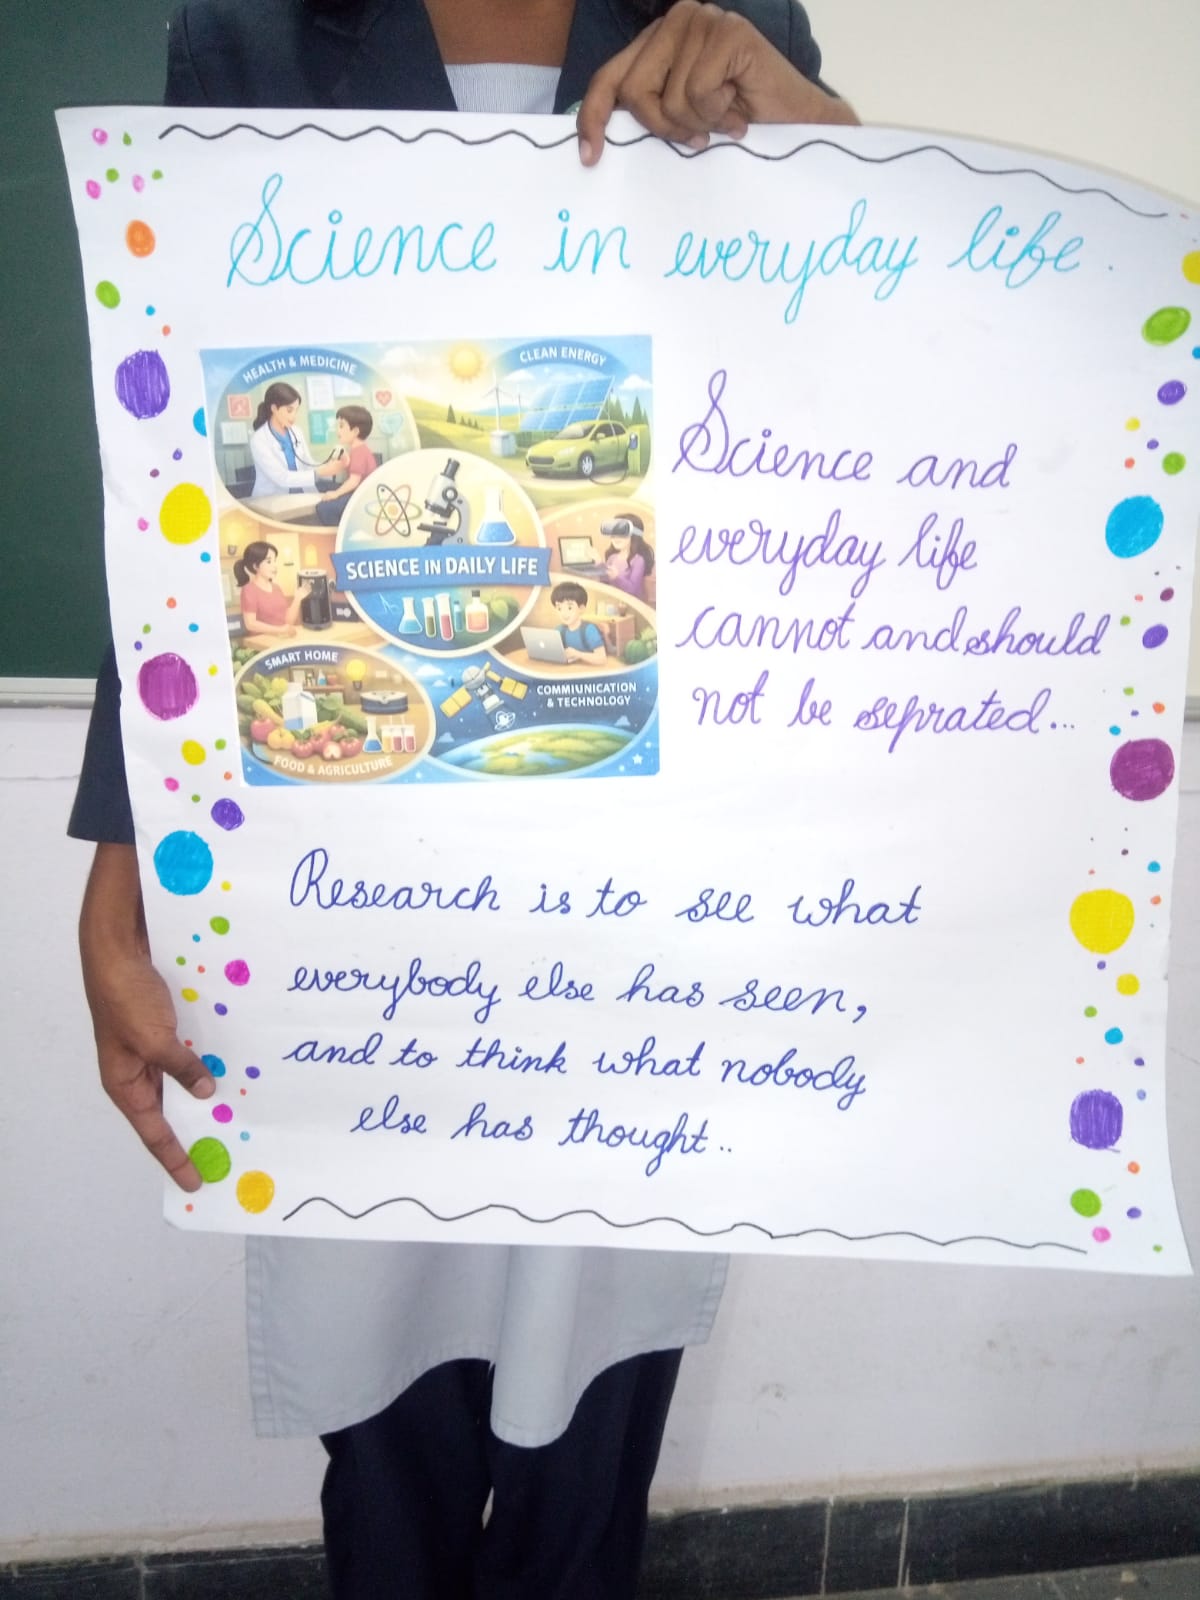 Science in everyday life.
HEALTH & MEDICINE
CLEAN ENERGY
SCIENCE IN DAILY LIFE
SMART HOME
COMMIUNICATION
& TECHNOLOGY
FOOD & AGRICULTURE
Science and
everyday life
cannot and should
not be seprated...
Research is to see what
everybody else has seen,
and to think what nobody
else has thought..